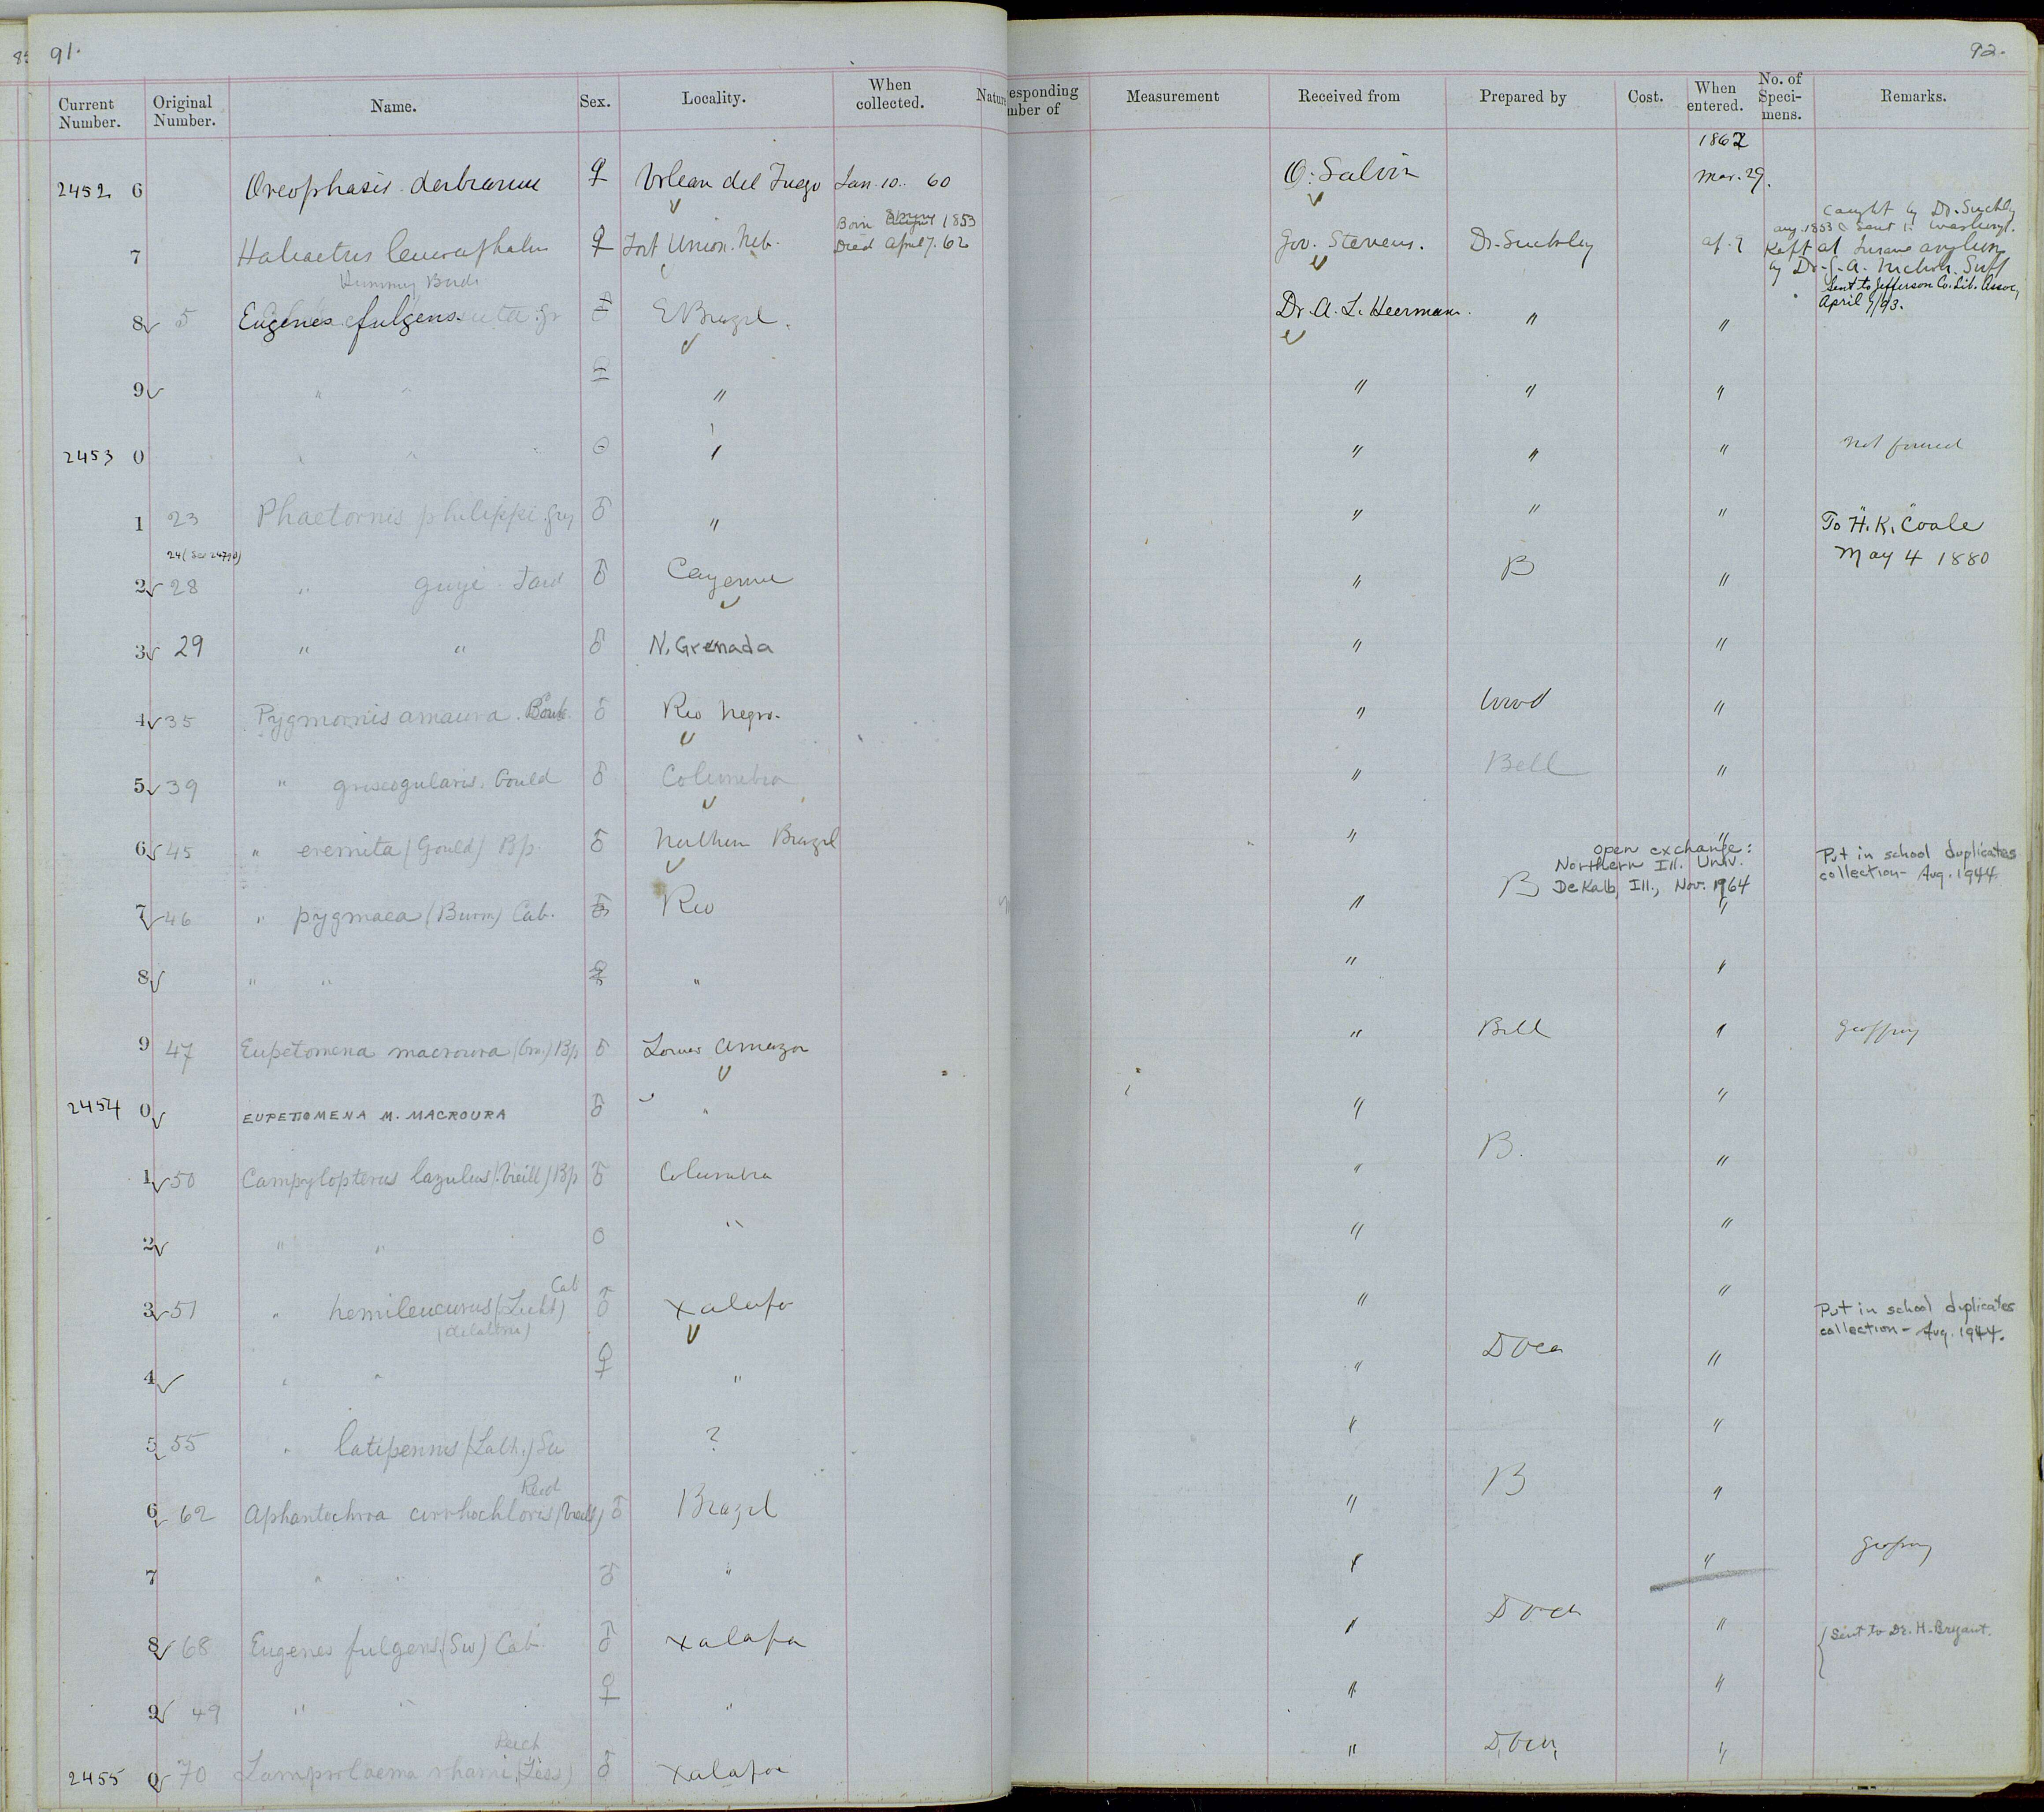 91.
92.
Current Number. Original Number. Name. Sex. Locality. When collected. Nature
esponding mber of Measurement Received from Prepared by Cost. When entered. No. of Speci-mens. Remarks.
1862
2452 6 Oreophasis derbianus ♀ Volcan del Fuego Jan. 10. 60 O. Salvin Mar. 29.
7 Haliaetus leucocephalus ♀ Fort Union. Neb. Born 1853 Died April 7. 62 Gov. Stevens. Dr. Suckley ap. 9
Caught by Dr. Suckley
Aug. 1853 & sent
Kept at Insane asylum
by Dr.
Sent to Jefferson Co. Lib. Assoc,
April 9/93.
Humming Birds
8 5 Eugenes fulgens E Brazil. Dr. A. L. Heermann. " "
9 " " " " " "
2453 0 " " " " not found
1 23 Phaetornis philippi ♂ " " " " To H. K. Coale
May 4 1880
2 28 " guyi ♂ Cayenne " B "
3 29 " " ♂ N. Grenada " "
4 35 Pygmornis amaura. ♂ Rio Negro. " Wood "
5 39 " griseogularis. Gould ♂ Columbia " Bell "
6 45 " eremita (Gould) Bp. ♂ Northern Brazil " "
open exchange:
Northern Ill. Univ.
DeKalb, Ill., Nov. 1964
Put in school duplicates
collection - Aug. 1944.
7 46 " pygmaea (Burm) Cab. ♂ Rio " B "
8 " " ♀ " " "
9 47 Eupetomena macroura (Gm.) Bp ♂ Lower Amazon " Bell " Geoffroy
2454 0 EUPETOMENA M. MACROURA ♂ " " "
1 50 Campylopterus lazulus (Vieill) Bp ♂ Columbia " B. "
2 " " O " " "
3 51 " hemileucurus (Licht) Cab ♂ Xalapa " "
(delattrei)
Put in school duplicates
collection - Aug. 1944.
4 " " ♀ " " D Oca "
5 55 " latipennis (Lath.) Sw ? " "
6 62 Aphantochroa cirrhochloris (Vieill) ♂ Brazil " B "
7 " " ♂ " " "
8 68 Eugenes fulgens (Sw) Cab. ♂ Xalapa " D Oca " { Sent to Dr. H. Bryant.
9 49 " " ♀ " " "
Reich
2455 0 70 Lamprolaema rhami (Less) ♂ Xalapa " D. Oca "